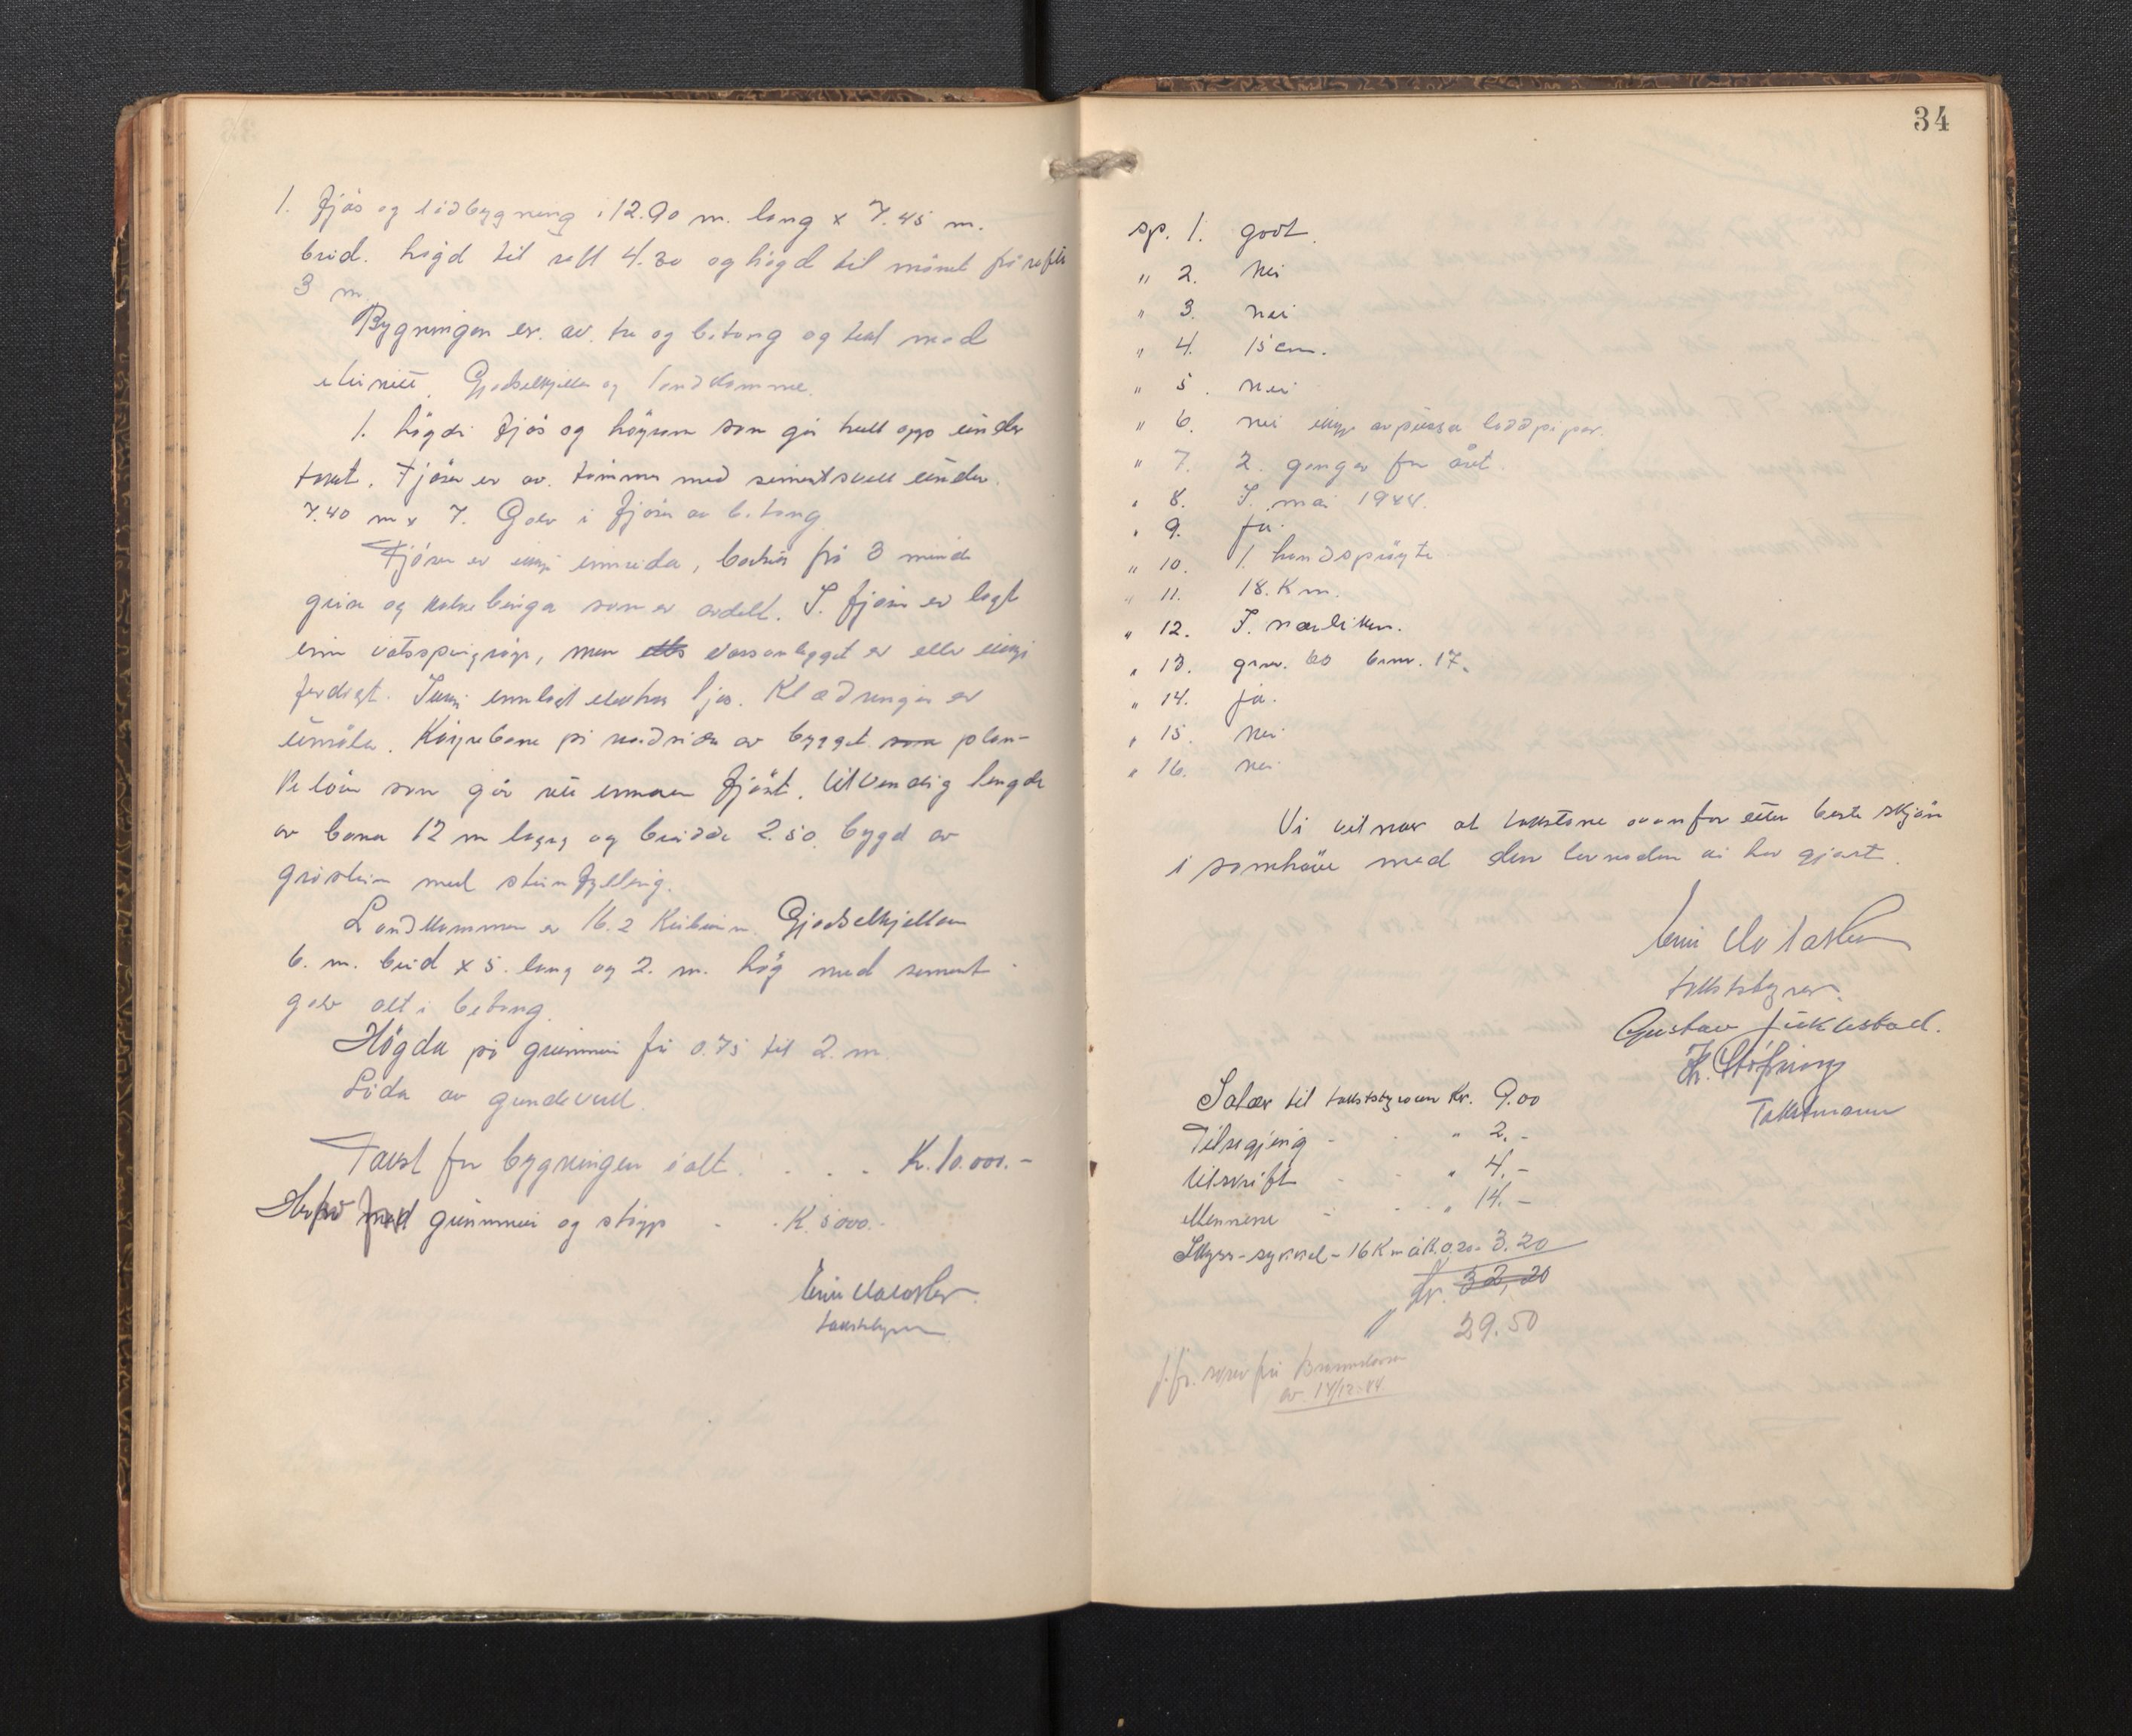 1. Fjós og lödbygning i 12.90 m. lang x 7.45 m.
breid. högd til raft 4.30 og högd til mönet frå raft
3 m.
Bygningen er av. tre og betong og tekt med
eternitt. Gjødselkjellar og landkumme.
1. högdi fjös og höyrom som går heilt opp under
taket. Fjösen er av. tömmer med sementskall under.
7.40 m x 7. Golv i fjösen av betong.
Fjösen er ikkje innreida, bortsett frå 3 mindre
grise og kalvebinga som er avdelt. I. fjösen er lagt
inn vatsspringrøyr, men vassanlegget er eller ikkji
ferdigt. Ikkji innlagt elektrisk ljos. Klædningen er
umåla. Köyrebane på nordsida av bygget som plan-
lagt som går rett innover fjöset. Utvendig lengde
av bana 12 m lang og breidde 2.50, bygd av
gråstein med steinfylling.
Landkummen er 16.2 Kubikm. Gjødselkjellaren
6. m. breid x 5. lang og 2. m. hög med sement
golv alt i betong.
Högda på grunnmur frå 0.75 til 2. m.
Löda av grindeverk.
Takst for bygningen ialt. . . . Kr. 10.000.-
Herfrå fråd grunnmur og støyp - - Kr. 5000.-
takststyrar
34
sp. 1. godt.
" 2. nei
" 3. nei
" 4. 15 cm.
" 5. nei
" 6. nei ikkje avpussa loddpipor.
" 7. 2. gonger for året.
" 8. I. mai 1944.
" 9. ja.
" 10. 1. handspröyte
" 11. 18. Km.
" 12. I. nærleiken.
" 13. gnr. 60 bnr. 17.
" 14. ja.
" 15. nei
" 16. nei
Vi vitnar at takstane ovanfor etter beste skjön
i samhöve med den lovnaden vi har gjort.
takststyrar.
Gustav Juklestad.
Takstmann
Salær til takststyraren Kr. 9.00
Tilseging - - " 2.-
Utskrift - - " 4.-
Mennene - - " 14.-
Skyss-sykkel-16 Km à K.0.20- 3.20
Kr. 32,20
" 29.50
j.fr. skriv frå Brannkassa
av. 14/12-44